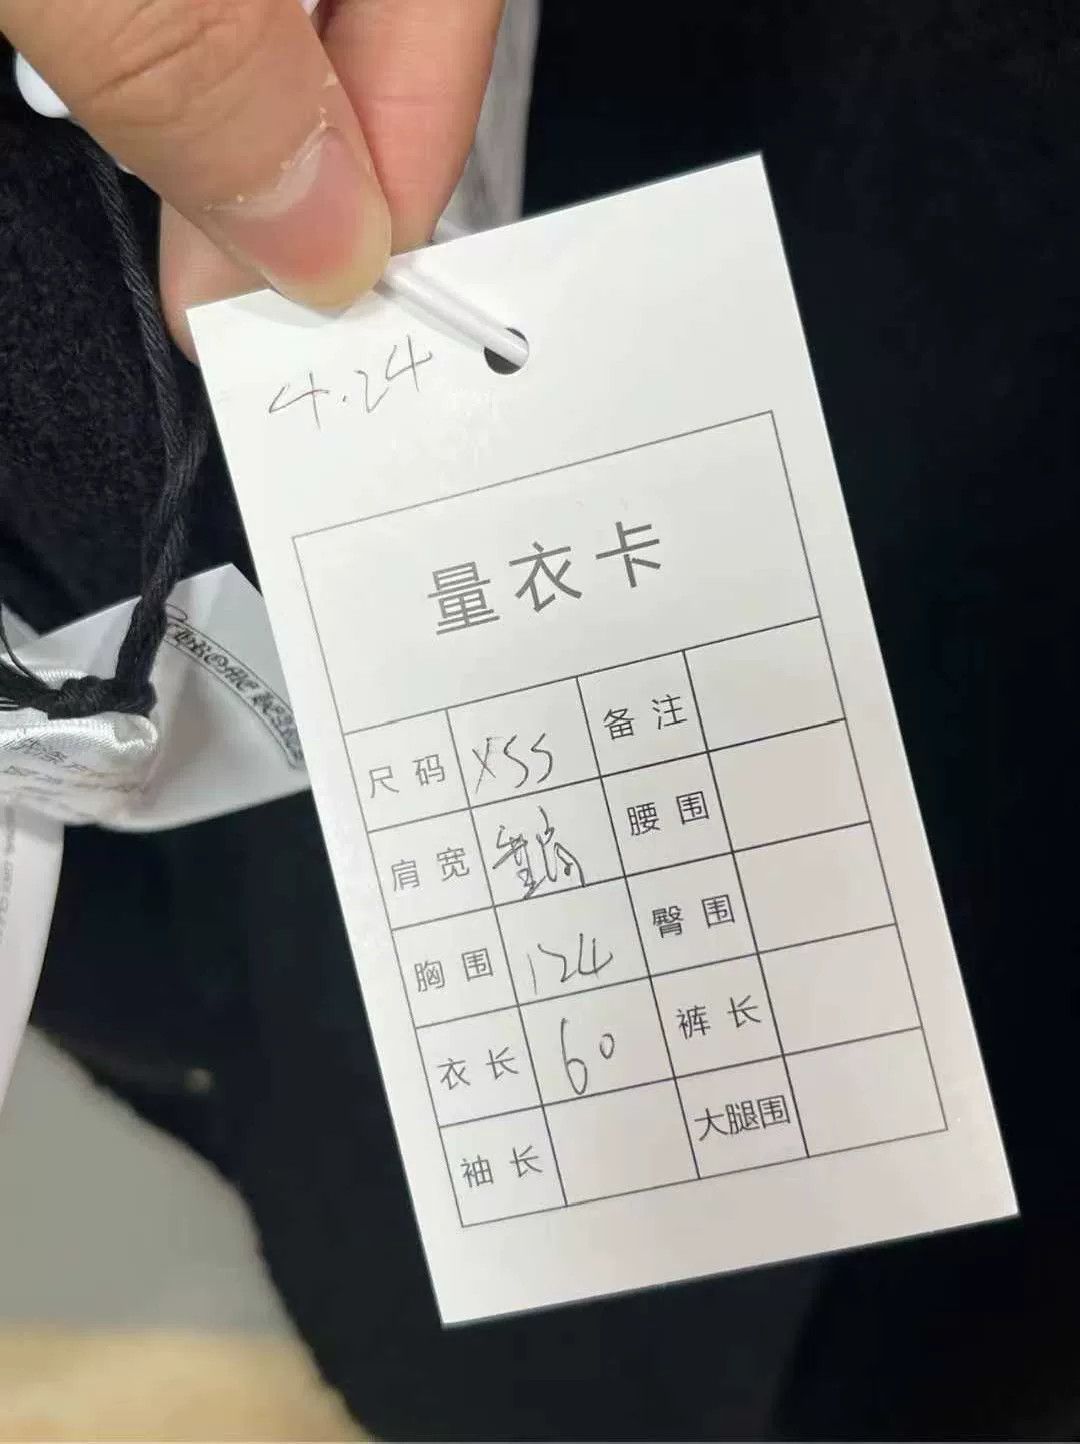 4.24
量衣卡
尺码 XSS 备注
肩宽 腰围
胸围 124 臀围
衣长 60 裤长
袖长 大腿围